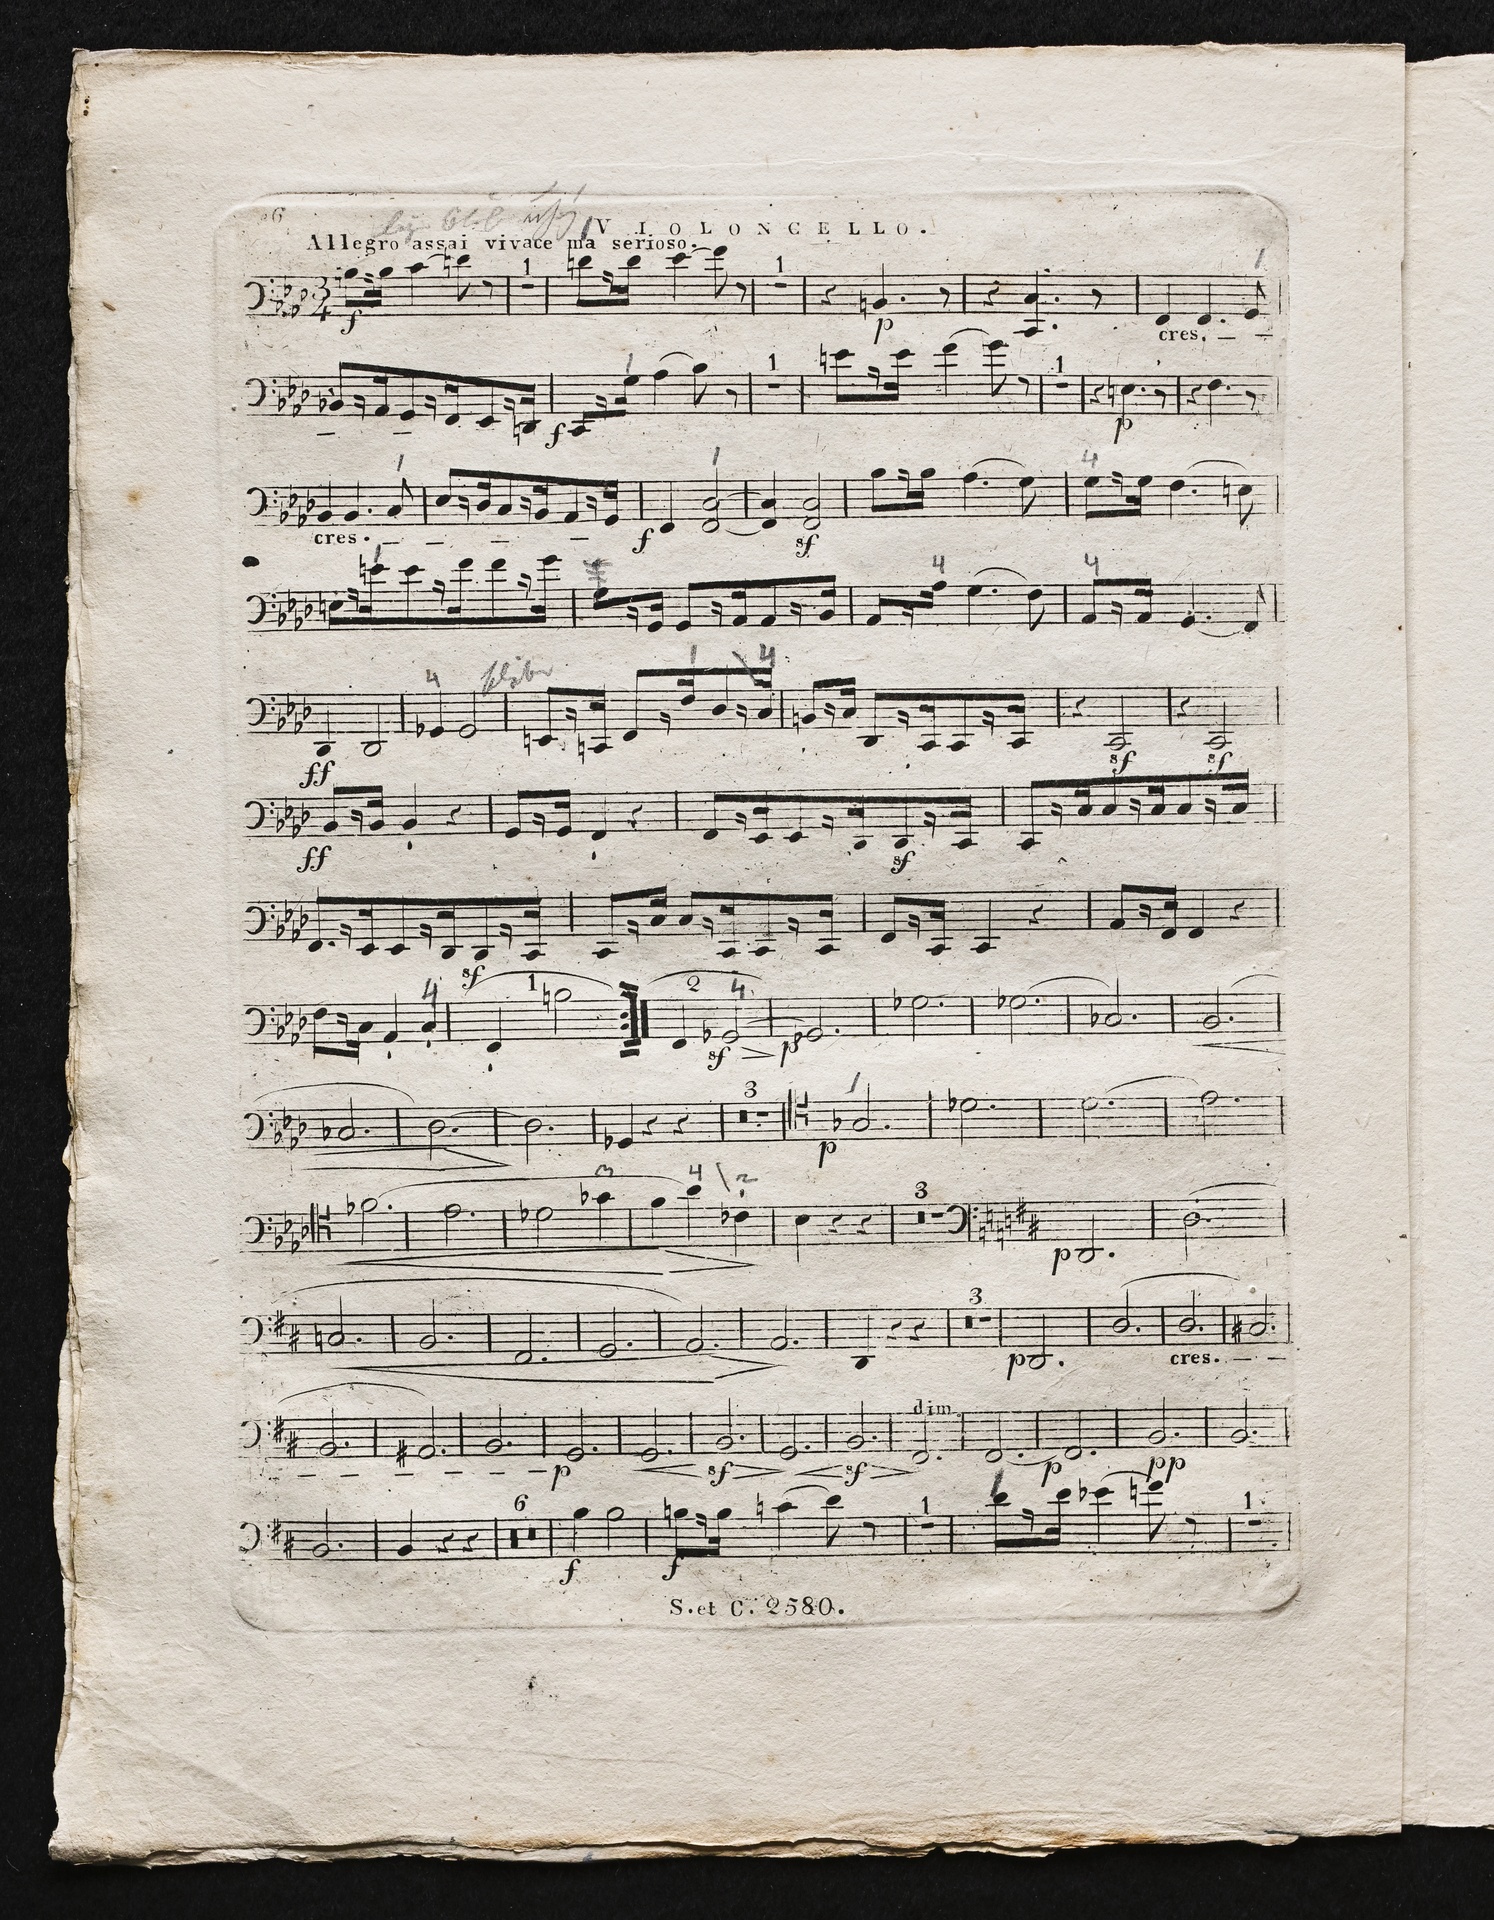 6
VIOLONCELLO.
Allegro assai vivace ma serioso.
3 4 1 1 1
f p cres.
1 1 1
f p
1 1 4
cres. f sf
1 4 4
4 1 4
ff sf sf
ff sf
sf
4 1 2 4
sf p
3 1
p
3 4 2 3
p
3
p cres.
dim
p sf sf p pp
6 1 1 1
f f
S. et C. 2580.